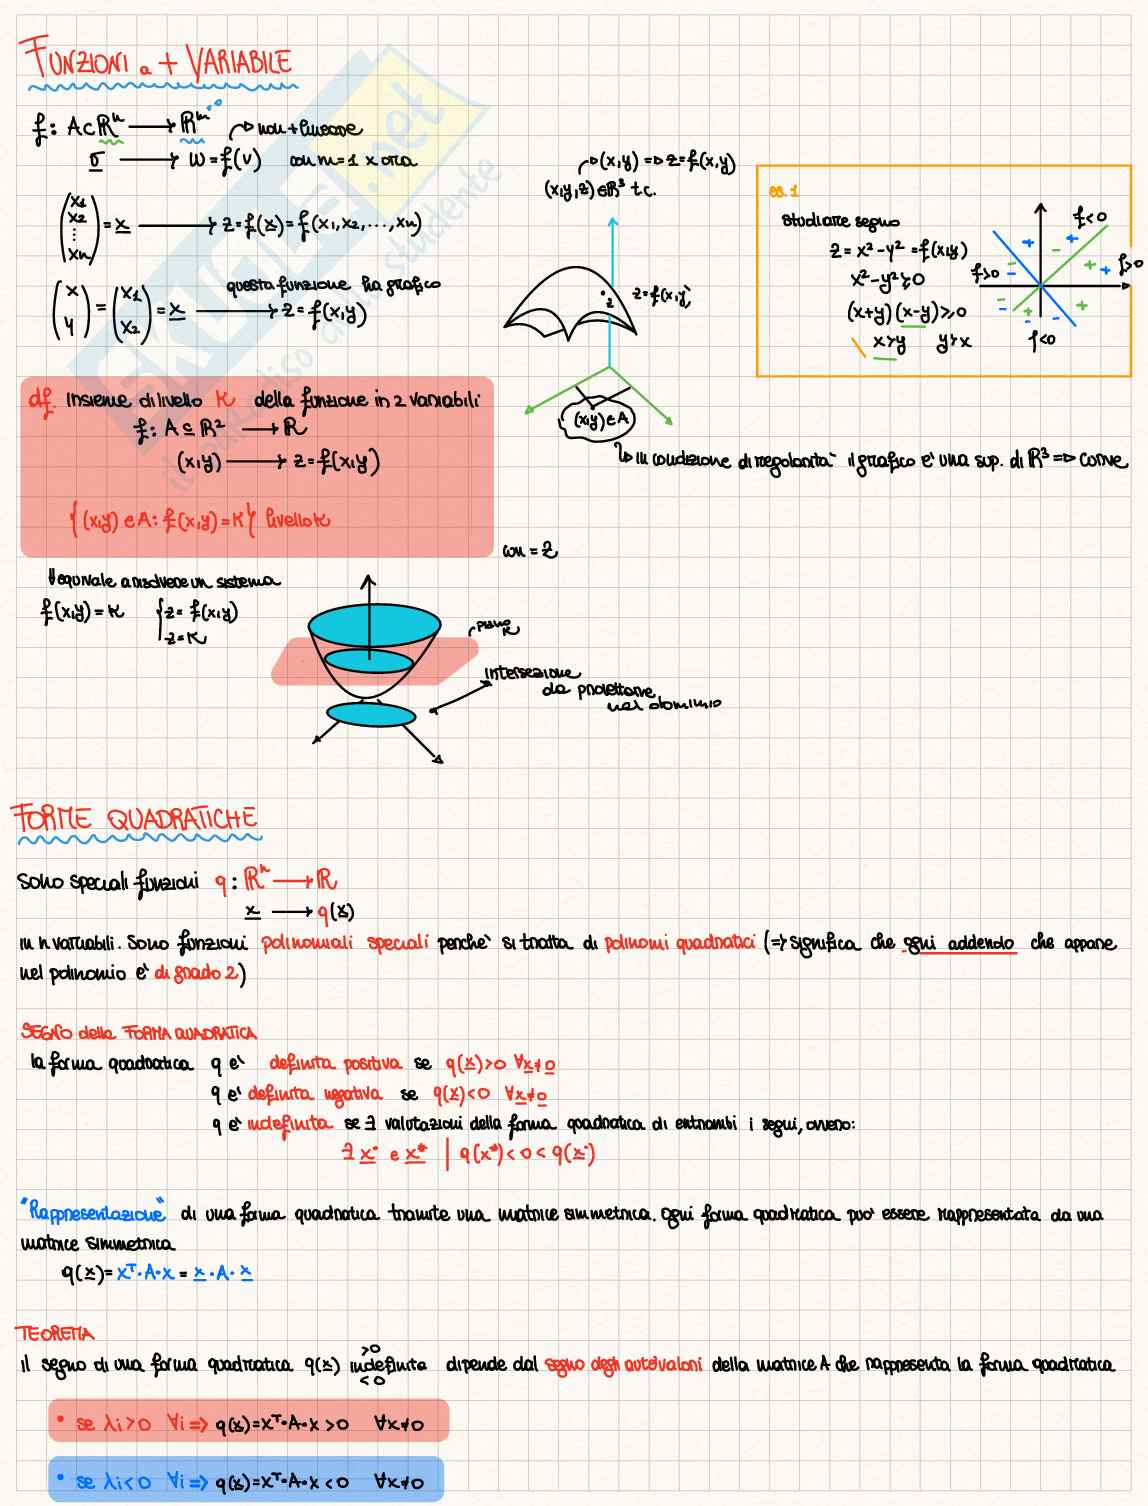 FUNZIONI a + VARIABILE
f: A⊂ℝⁿ → ℝᵐ
non + lineare
v → w = f(v) con m=1 x ora
(x1 x2 ⋮ xn) = x → z = f(x) = f(x1, x2, ..., xn)
questa funzione ha grafico
(x y) = (x1 x2) = x → z = f(x,y)
(x,y) => z = f(x,y)
(x,y,z) ∈ ℝ³ t.c.
z = f(x,y)
(x,y) ∈ A
in condizione di regolarità il grafico e' una sup. di ℝ³ => come
es. 1
studiare segno
z = x² - y² = f(x,y)
x² - y² ≥ 0
(x+y)(x-y) ≥ 0
x > y y > x
f<0
f>0
f>0
f<0
df. Insieme di livello K della funzione in 2 variabili
f: A ⊆ ℝ² → ℝ
(x,y) → z = f(x,y)
{(x,y) ∈ A: f(x,y) = K} livello K
con = z
equivale a risolvere un sistema
f(x,y) = K { z = f(x,y)
z = K
piano K
intersezione
da proiettare
nel dominio
FORME QUADRATICHE
Sono speciali funzioni q: ℝⁿ → ℝ
x → q(x)
in n variabili. Sono funzioni polinomiali speciali perche' si tratta di polinomi quadratici (=> significa che ogni addendo che appare
nel polinomio e' di grado 2)
SEGNO della FORMA QUADRATICA
la forma quadratica q e' definita positiva se q(x)>0 ∀x≠0
q e' definita negativa se q(x)<0 ∀x≠0
q e' indefinita se ∃ valutazioni della forma quadratica di entrambi i segni, ovvero:
∃ x° e x* | q(x*) < 0 < q(x°)
"Rappresentazione" di una forma quadratica tramite una matrice simmetrica. Ogni forma quadratica puo' essere rappresentata da una
matrice simmetrica
q(x) = xᵀ·A·x = x·A·x
TEOREMA
>0
il segno di una forma quadratica q(x) indefinita dipende dal segno degli autovalori della matrice A che rappresenta la forma quadratica
<0
• se λi>0 ∀i => q(x)=xᵀ·A·x > 0 ∀x≠0
• se λi<0 ∀i => q(x)=xᵀ·A·x < 0 ∀x≠0